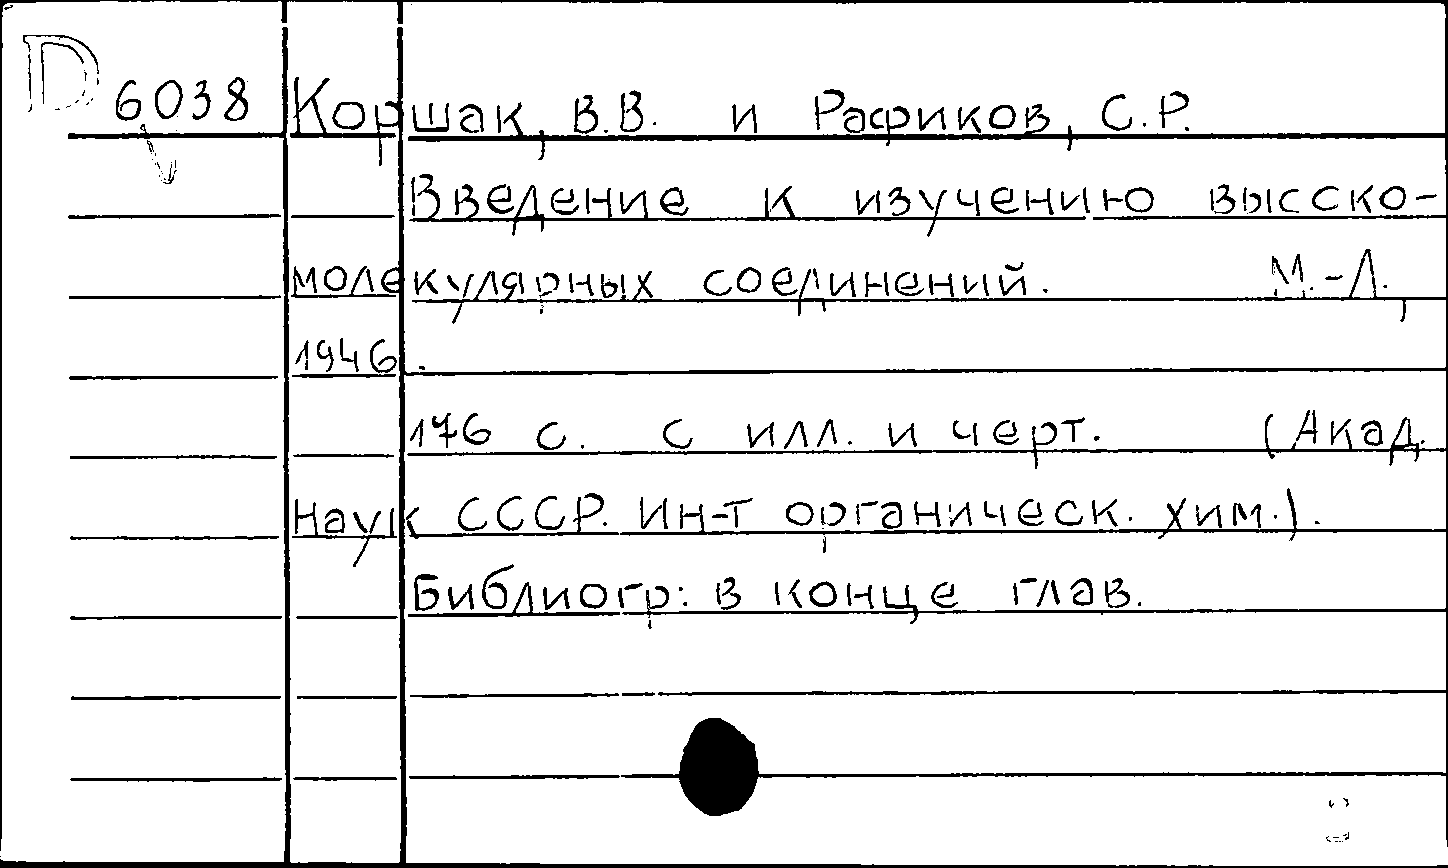 D 6038 Коршак, В.В. и Рафиков, С.Р.
Введение к изучению высско-
молекулярных соединений. М.-Л.,
1946.
176 с. с илл. и черт. (Акад.
наук СССР. Ин-т органическ. хим.).
Библиогр: в конце глав.